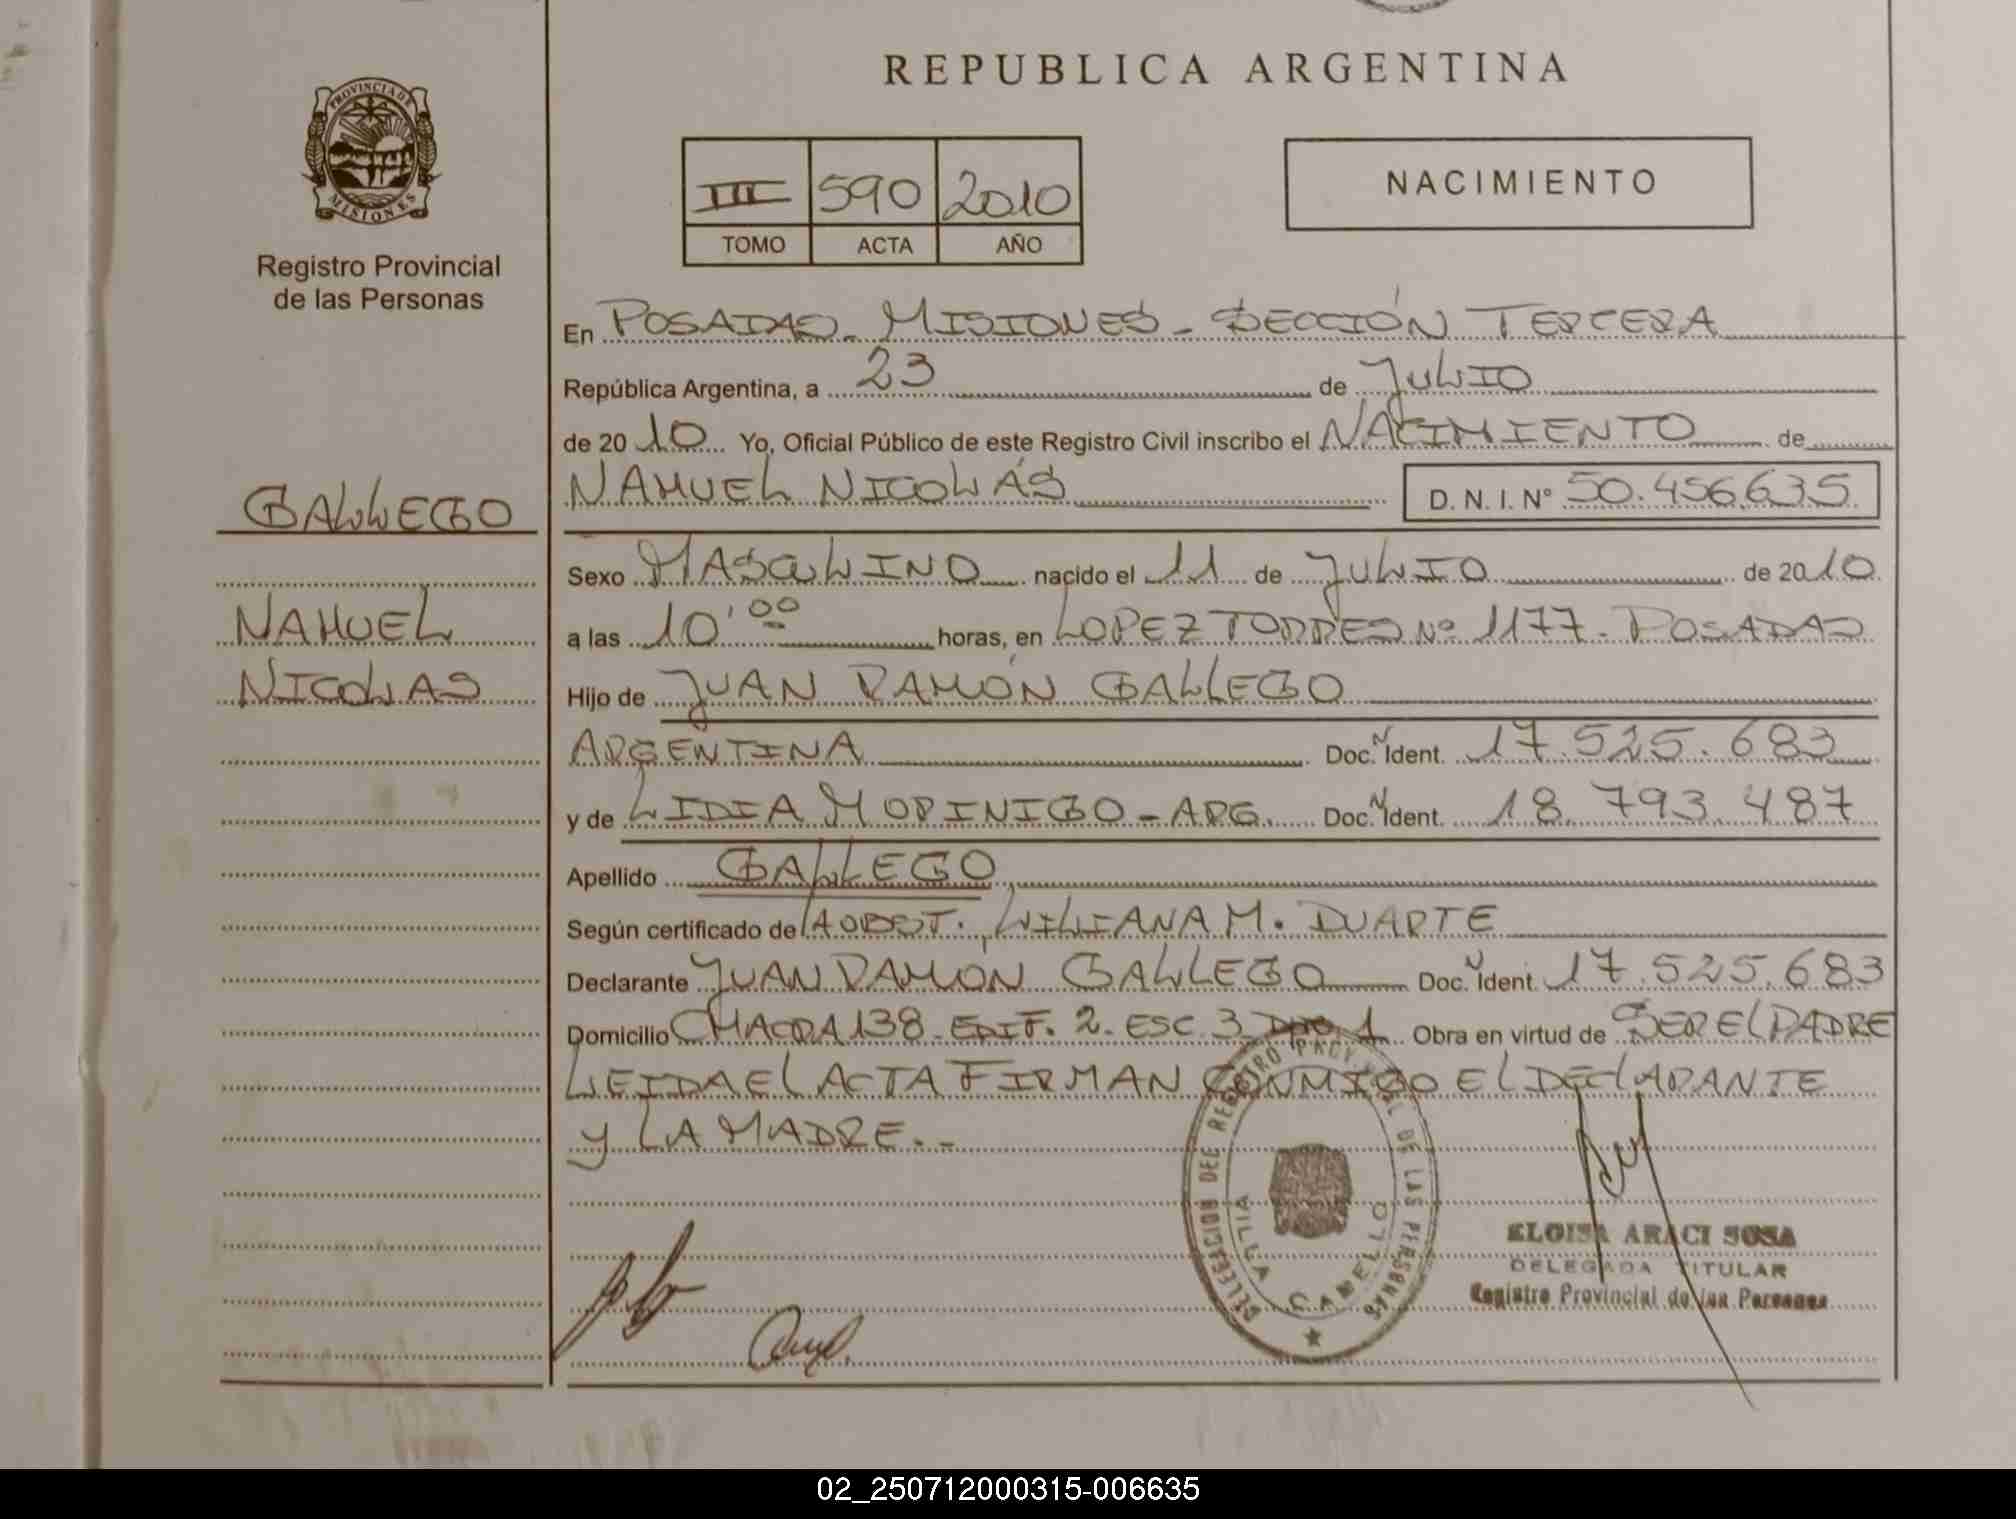 REPUBLICA ARGENTINA
PROVINCIA DE
MISIONES
Registro Provincial
de las Personas
III 590 2010
TOMO ACTA AÑO
NACIMIENTO
En POSADAS - MISIONES - SECCIÓN TERCERA
República Argentina, a 23 de JULIO
de 2010 Yo, Oficial Público de este Registro Civil inscribo el NACIMIENTO de
NAHUEL NICOLÁS D. N. I. Nº 50.456.635
GALLEGO
NAHUEL
NICOLAS
Sexo MASCULINO nacido el 11 de JULIO de 2010
a las 10'00 horas, en LOPEZ TORRES Nº 1177. POSADAS
Hijo de JUAN RAMÓN GALLEGO
ARGENTINA Doc. N Ident. 17.525.683
y de LIDIA MORINIGO - ARG. Doc. N Ident. 18.793.487
Apellido GALLEGO
Según certificado de LA OBST. LILIANA M. DUARTE
Declarante JUAN RAMÓN GALLEGO Doc. N Ident 17.525.683
Domicilio CHACRA 138 - EDIF. 2. ESC. 3 DPTO. 1 Obra en virtud de SER EL PADRE
LEIDA EL ACTA FIRMAN CONMIGO EL DECLARANTE
Y LA MADRE.-
DELEGACION DEL REGISTRO PROVINCIAL DE LAS PERSONAS
VILLA CABELLO
ELOISA ARACI SOSA
DELEGADA TITULAR
Registro Provincial de las Personas
02_250712000315-006635